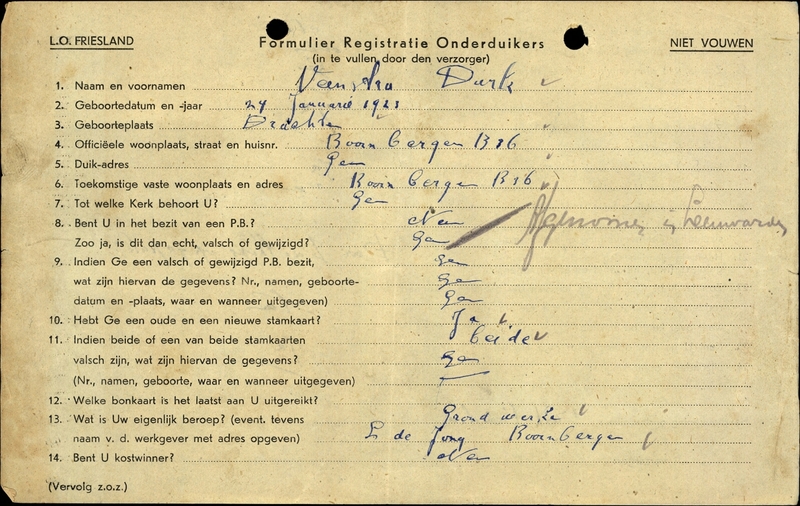 L.O. FRIESLAND
Formulier Registratie Onderduikers
NIET VOUWEN
(in te vullen door den verzorger)
1. Naam en voornamen Durk
2. Geboortedatum en -jaar 24 Januarie 1921
3. Geboorteplaats Drachte
4. Officiëele woonplaats, straat en huisnr. Boornbergen B 86
5. Duik-adres Gen
6. Toekomstige vaste woonplaats en adres Boornbergen B 86
7. Tot welke Kerk behoort U? Gen
8. Bent U in het bezit van een P.B.? Nen
Zoo ja, is dit dan echt, valsch of gewijzigd? Gen
Leeuwarden
9. Indien Ge een valsch of gewijzigd P.B. bezit, Gen
wat zijn hiervan de gegevens? Nr., namen, geboorte- Gen
datum en -plaats, waar en wanneer uitgegeven) Gen
10. Hebt Ge een oude en een nieuwe stamkaart? Ja
11. Indien beide of een van beide stamkaarten beide
valsch zijn, wat zijn hiervan de gegevens? Gen
(Nr., namen, geboorte, waar en wanneer uitgegeven)
12. Welke bonkaart is het laatst aan U uitgereikt?
13. Wat is Uw eigenlijk beroep? (event. tevens Grond werke
naam v. d. werkgever met adres opgeven) de Jong Boornbergen
14. Bent U kostwinner? Nen
(Vervolg z.o.z.)